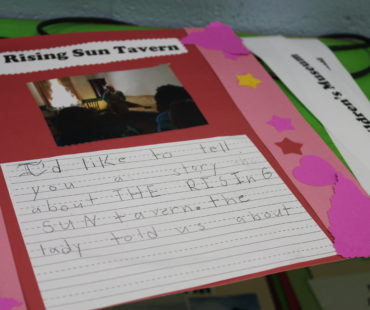 Rising Sun Tavern
I'd like to tell
you a story
about THE RISING
SUN tavern. the
lady told us about
Children's Museum